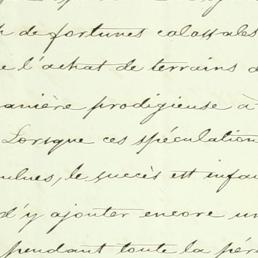 de fortunes colossales
l'achat de terrains d
manière prodigieuse à
Lorsque ces spéculation
le succès est infai
d'y ajouter encore un
pendant toute la pér